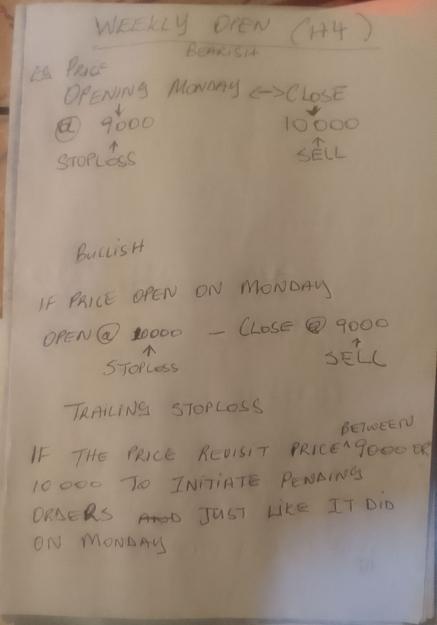 WEEKLY OPEN (H4)
BEARISH
EG PRICE
OPENING MONDAY <-> CLOSE
@ 9000 10000
STOPLOSS SELL
BULLISH
IF PRICE OPEN ON MONDAY
OPEN @ 10000 - CLOSE @ 9000
STOPLOSS SELL
TRAILING STOPLOSS
IF THE PRICE REVISIT PRICE ^BETWEEN 9000 OR
10000 TO INITIATE PENDING
ORDERS JUST LIKE IT DID
ON MONDAY